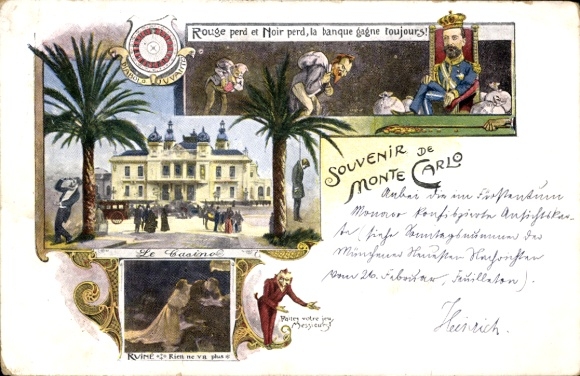 Rouge perd et Noir perd, la banque gagne toujours!
SOUVENIR DE
MONTE CARLO
Anbei die im Fürstentum
Monaco konfiszierte Ansichtskar-
te (siehe Sonntagsnummer der
Münchener Neuesten Nachrichten
vom 26. Februar, Feuilleton).
Heinrich.
Le Casino
Faites votre jeu,
Messieurs!
RUINE Rien ne va plus